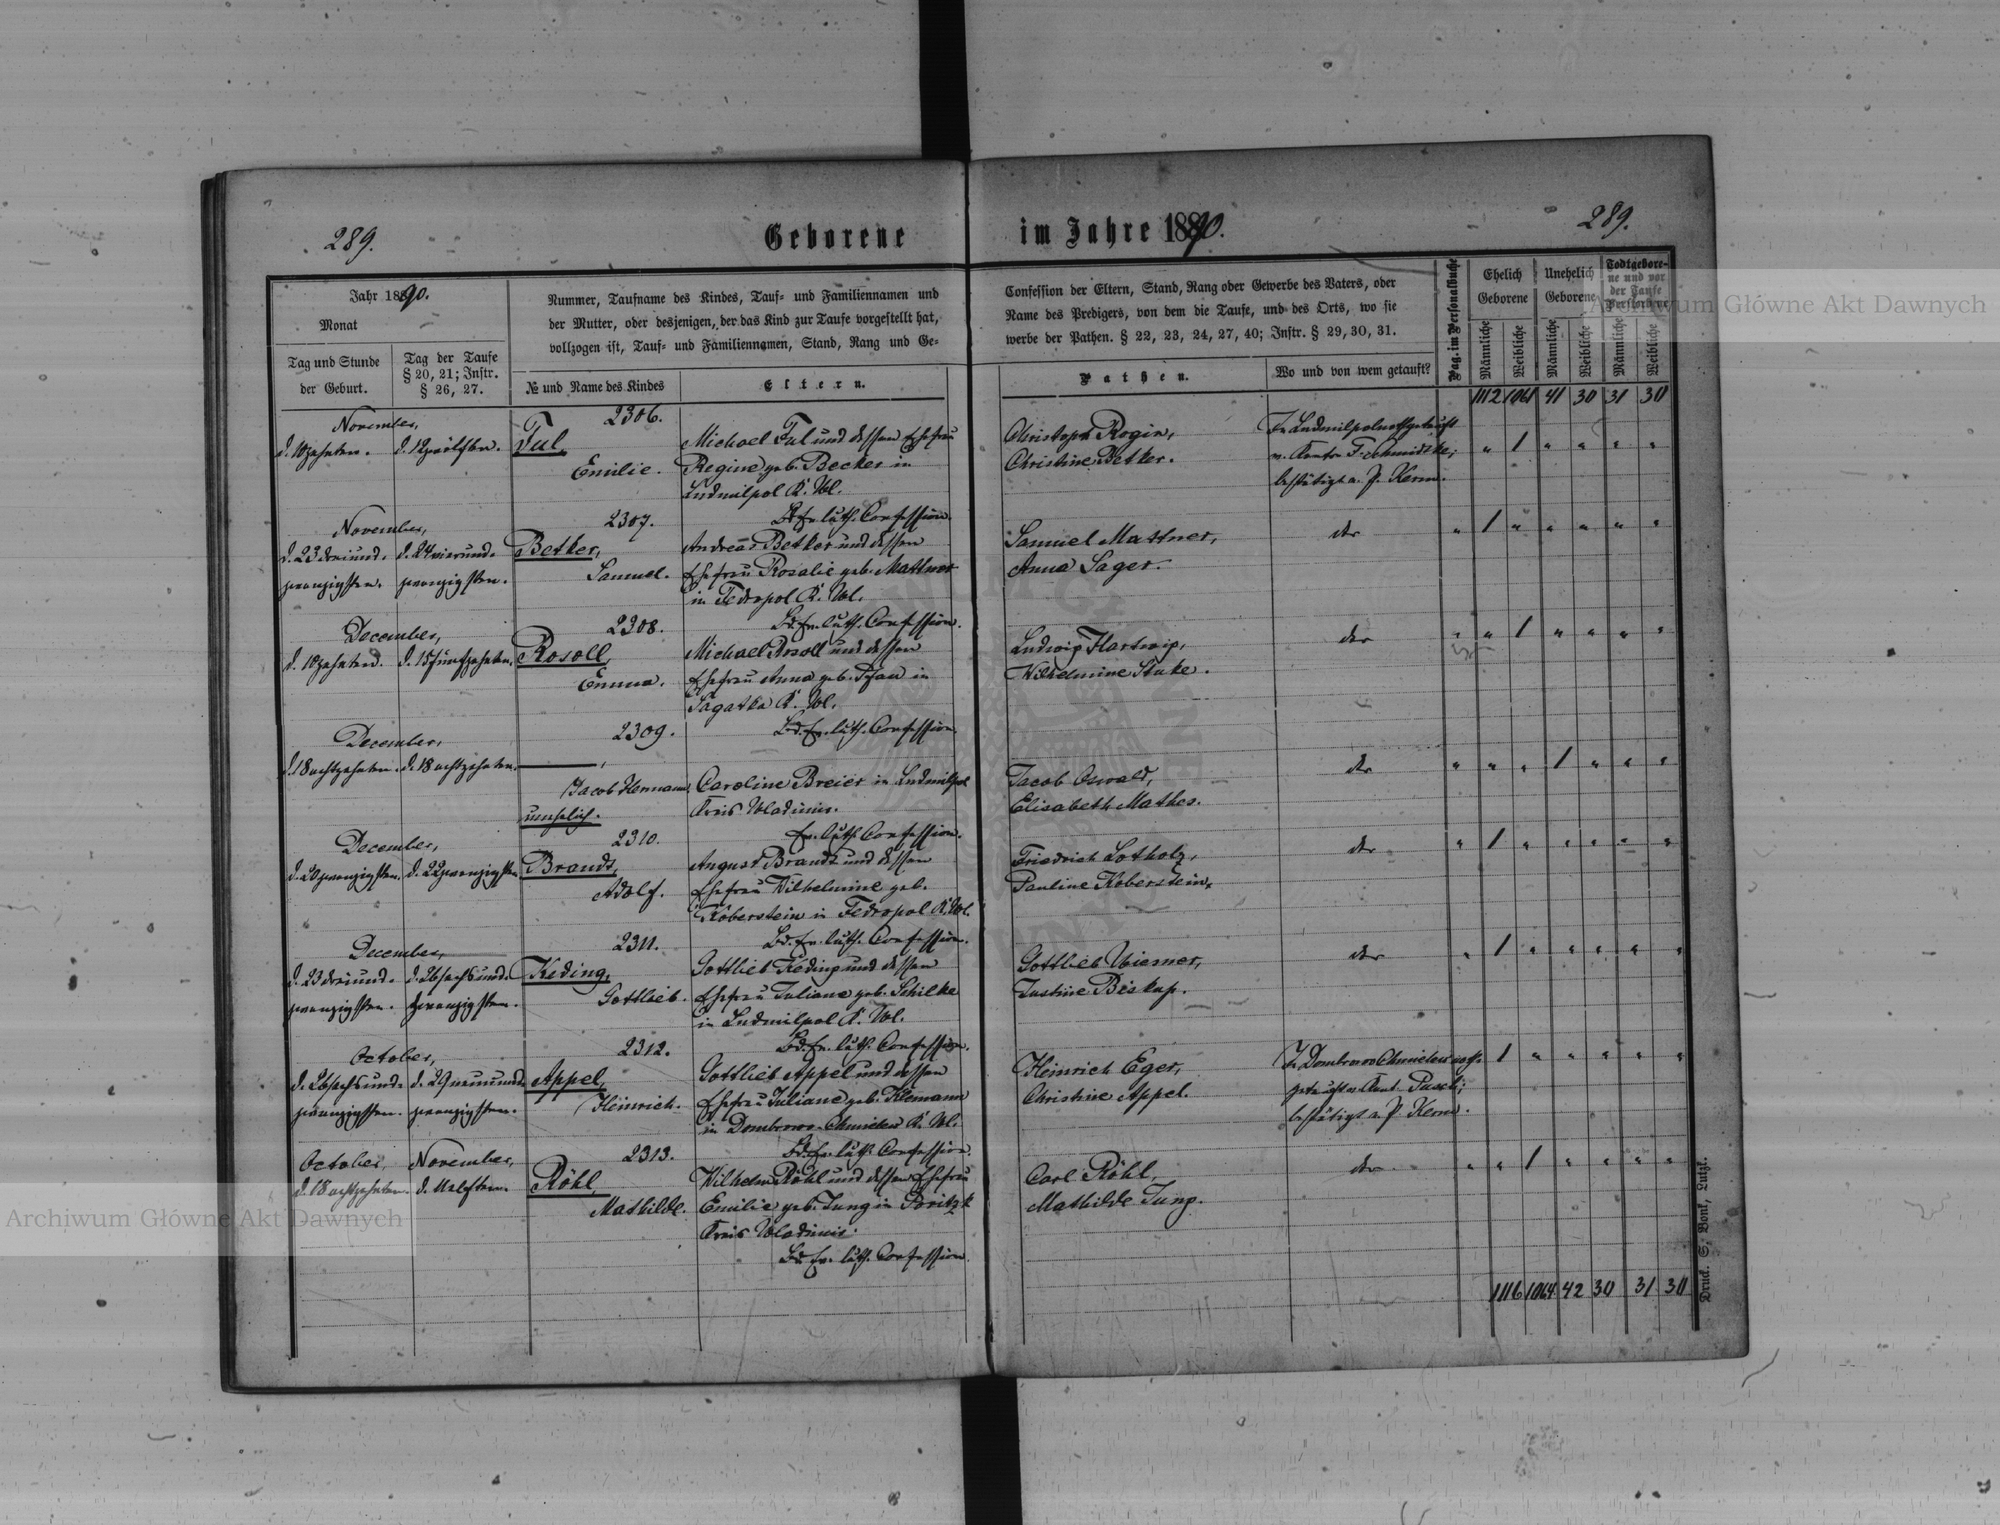 289.
Geborene
im Jahre 1890.
289.
Jahr 1890.
Monat
Tag und Stunde
der Geburt.
Tag der Taufe
§ 20, 21; Instr.
§ 26, 27.
Nummer, Taufname des Kindes, Tauf- und Familiennamen und
der Mutter, oder desjenigen, der das Kind zur Taufe vorgestellt hat,
vollzogen ist, Tauf- und Familiennamen, Stand, Rang und Ge-
№ und Name des Kindes
Eltern.
Confession der Eltern, Stand, Rang oder Gewerbe des Vaters, oder
Name des Predigers, von dem die Taufe, und des Orts, wo sie
werbe der Pathen. § 22, 23, 24, 27, 40; Instr. § 29, 30, 31.
Pathen.
Wo und von wem getauft?
Pag. im Personalbuche
Ehelich
Geborene
Unehelich
Geborene
Todtgebore-
ne und vor
der Taufe
Männliche
Weibliche
Männliche
Weibliche
Männliche
Weibliche
1112 1061 41 30 31 30
November,
d. 10 zehnten.
d. 12 zwölften.
2306.
Tul,
Emilie.
Michael Tul und dessen Ehefrau
Regine geb. Becker in
Ludmilpol K. Wl.
Bd. Ev. luth. Confession.
Christoph Rogin,
Christine Betker.
In Ludmilpol nothgetauft
v. Kantor F. Schmidtke;
bestätigt v. P. Kerm.
" 1 " " " "
November,
d. 23 dreiund-
zwanzigsten.
d. 24 vierund-
zwanzigsten.
2307.
Betker,
Samuel.
Andreas Betker und dessen
Ehefrau Rosalie geb. Mattner
in Fedropol K. Wl.
Bd. Ev. luth. Confession.
Samuel Mattner,
Anna Sager.
der
" 1 " " " " "
December,
d. 10 zehnten.
d. 15 fünfzehnten.
2308.
Rosoll,
Emma.
Michael Rosoll und dessen
Ehefrau Anna geb. in
Sagatka K. Wl.
Bd. Ev. luth. Confession.
Ludwig Hartwig,
Wilhelmine Stuke.
der
" " 1 " " " "
December,
d. 18 achtzehnten.
d. 18 achtzehnten.
2309.
Jacob Hermann,
unehelich.
Caroline Breier in Ludmilpol
Kreis Wladimir.
Ev. luth. Confession.
Jacob Oswald,
Elisabeth Mathes.
der
" " " 1 " " "
December,
d. 20 zwanzigsten.
d. 22 zwanzigsten
2310.
Brandt,
Adolf.
August Brandt und dessen
Ehefrau Wilhelmine geb.
Koberstein in Fedropol K. Wl.
Bd. Ev. luth. Confession.
Friedrich Lotholz,
Pauline Koberstein.
der
" 1 " " " " "
December,
d. 23 dreiund-
zwanzigsten.
d. 26 sechsund-
zwanzigsten.
2311.
Keding,
Gottlieb.
Gottlieb Keding und dessen
Ehefrau Juliane geb. Schilke
in Ludmilpol K. Wl.
Bd. Ev. luth. Confession.
Gottlieb Wiemer,
Justine Biskup.
der
" 1 " " " " "
October,
d. 26 sechsund-
zwanzigsten.
d. 29 neunund-
zwanzigsten.
2312.
Appel,
Heinrich.
Gottlieb Appel und dessen
Ehefrau Juliane geb. Klemann
in Dombrowo-Chmielew K. Wl.
Bd. Ev. luth. Confession.
Heinrich Eger,
Christine Appel.
In Dombrowo Chmielew noth-
getauft v. Kant. Pusch;
bestätigt v. P. Kerm.
1 " " " " "
October,
d. 18 achtzehnten.
November,
d. 11 elften.
2313.
Röhl,
Mathilde.
Wilhelm Röhl und dessen Ehefrau
Emilie geb. Jung in Poritzk
Kreis Wladimir.
Bd. Ev. luth. Confession.
Carl Röhl,
Mathilde Jung.
der
" " 1 " " " "
1116 1064 42 30 31 30
Druck. S. Bonk, Lutzk.
Archiwum Główne Akt Dawnych
Archiwum Główne Akt Dawnych